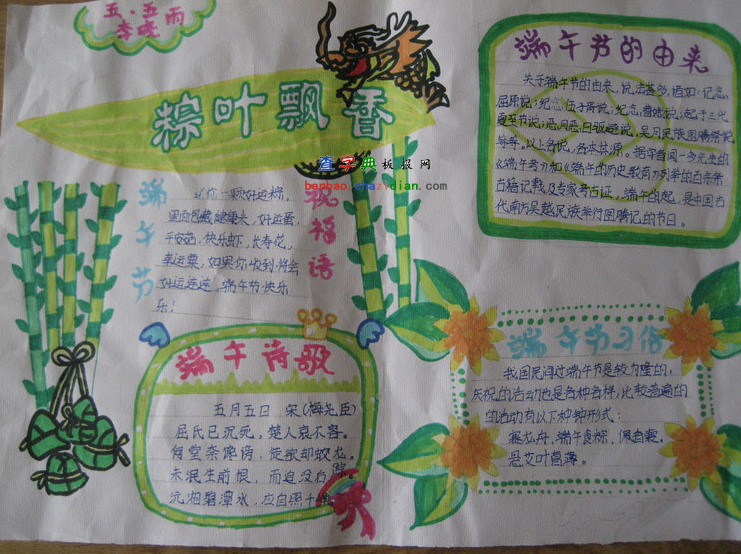 五·五
雨
粽叶飘香
查字典板报网
banbao.chazidian.com
端午节
祝福语
送你一颗好运粽,
里面包藏健康米,好运蛋,
平安菇,快乐虾,长寿花,
幸运粟,如果你收到将会
好运连连,端午节快乐
乐!
端午诗歌
五月五日 宋(梅尧臣)
屈氏已沉死,楚人哀不容。
何尝奈谗谤,徒欲却蛟龙。
未泯生前恨,而追没后踪。
沅湘碧潭水,应自照千
端午节的由来
关于端午节的由来,说法甚多,诸如:纪念
屈原说;纪念伍子胥说;纪念曹娥说;起于三代
夏至节说;恶月恶日驱避说,吴月民族图腾祭说
等等。以上各说,各本其源。据学者闻一多先生的
《端午考》和《端午的历史教育》列举的百余条
古籍记载及专家考古证,端午的起,是中国古
代南方吴越民族举行图腾记的节日。
端午节习俗
我国民间过端午节是较为隆的,
庆祝的活动也是各种各样,比较普遍的
的活动有以下种种形式:
赛龙舟,端午食粽,佩香囊,
悬艾叶菖蒲。